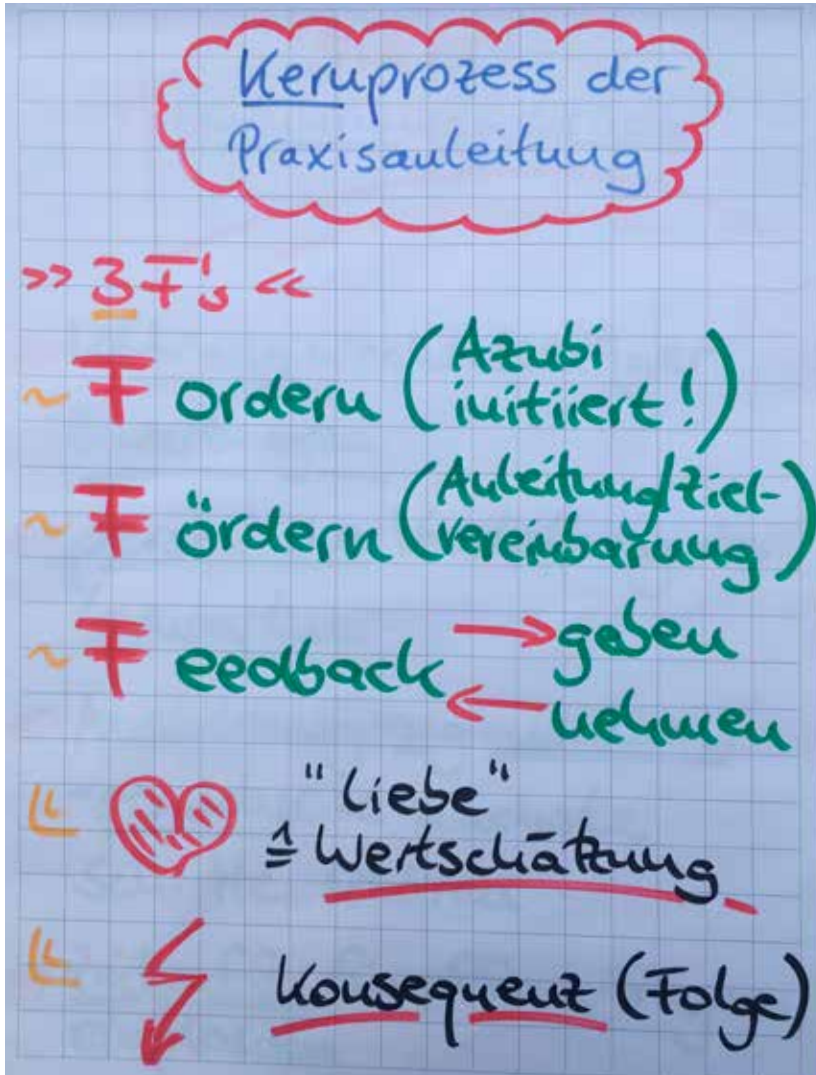 Kernprozess der
Praxisanleitung
>> 3 F's <<
~ Fordern (Azubi
initiiert!)
~ Fördern (Anleitung/Ziel-
vereinbarung)
~ Feedback → geben
← nehmen
"Liebe"
≙ Wertschätzung
Konsequenz (Folge)